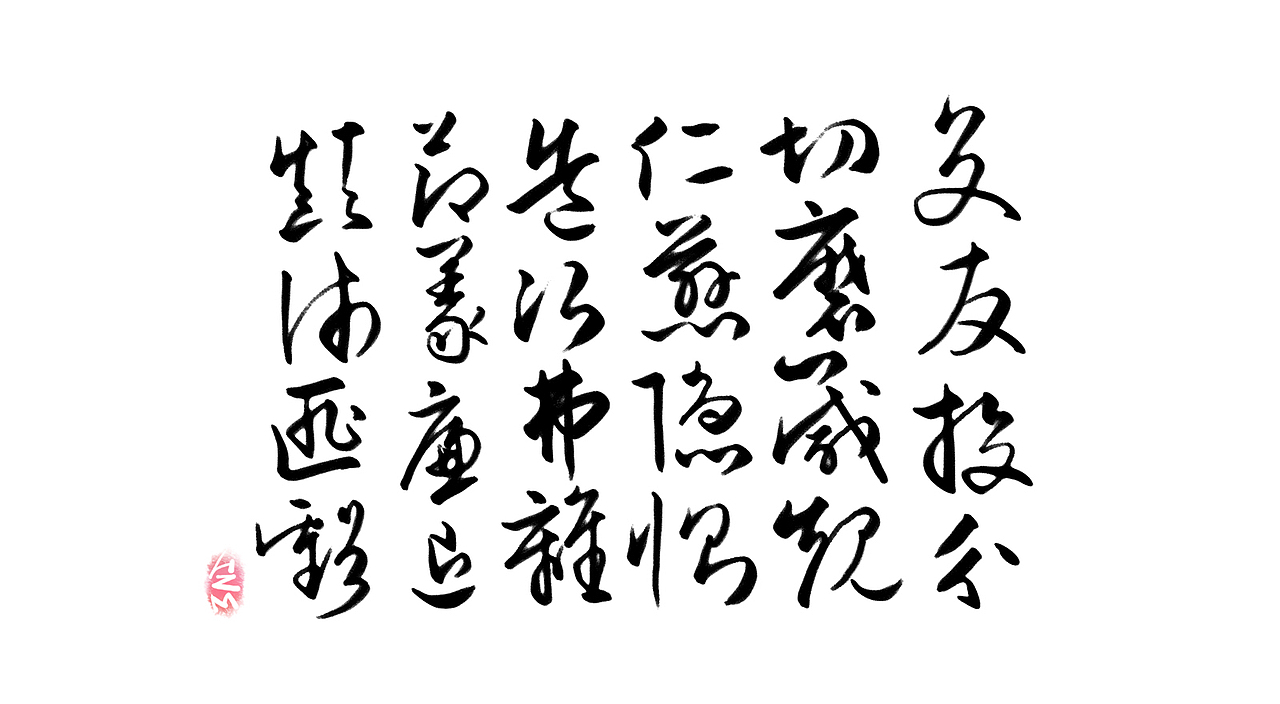 交友投分
切磨箴規
仁慈隱惻
造次弗離
節義廉退
顛沛匪虧